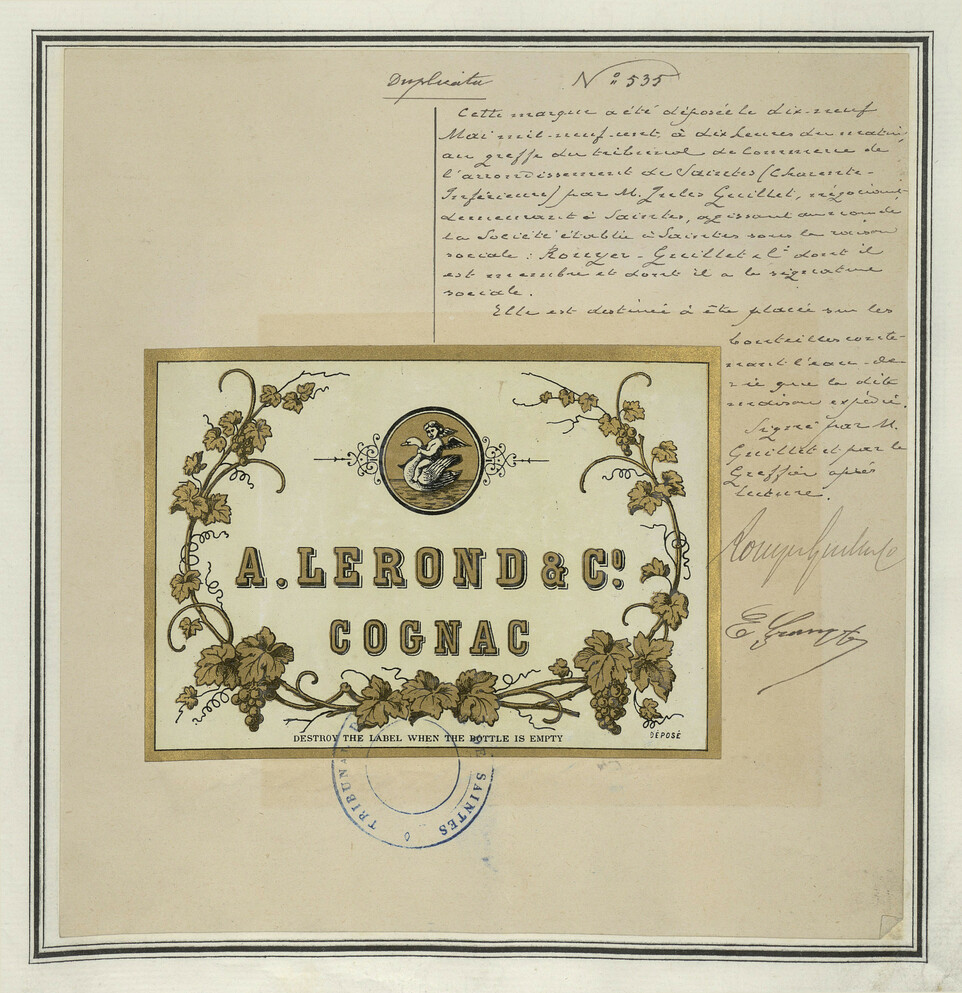 Duplicata
N° 535
Cette marque a été déposée le dix-neuf
Mai mil-neuf-cent, à dix heures du matin,
au greffe du tribunal de Commerce de
l'arrondissement de Saintes (Charente-
Inférieure) par M. Jules Guillet, négociant
demeurant à Saintes, agissant au nom de
la Société établie à Saintes sous la raison
sociale : Rouyer-Guillet & Cie dont il
est membre et dont il a la signature
sociale.
Elle est destinée à être placée sur les
bouteilles conte-
nant l'eau-de-
vie que la dite
maison expédie.
Signé par M.
Guillet et par le
Greffier après
lecture.
Rouyer Guillet & Co
A. LEROND & Cº
COGNAC
DESTROY THE LABEL WHEN THE BOTTLE IS EMPTY
DÉPOSÉ
TRIBUNAL DE SAINTES